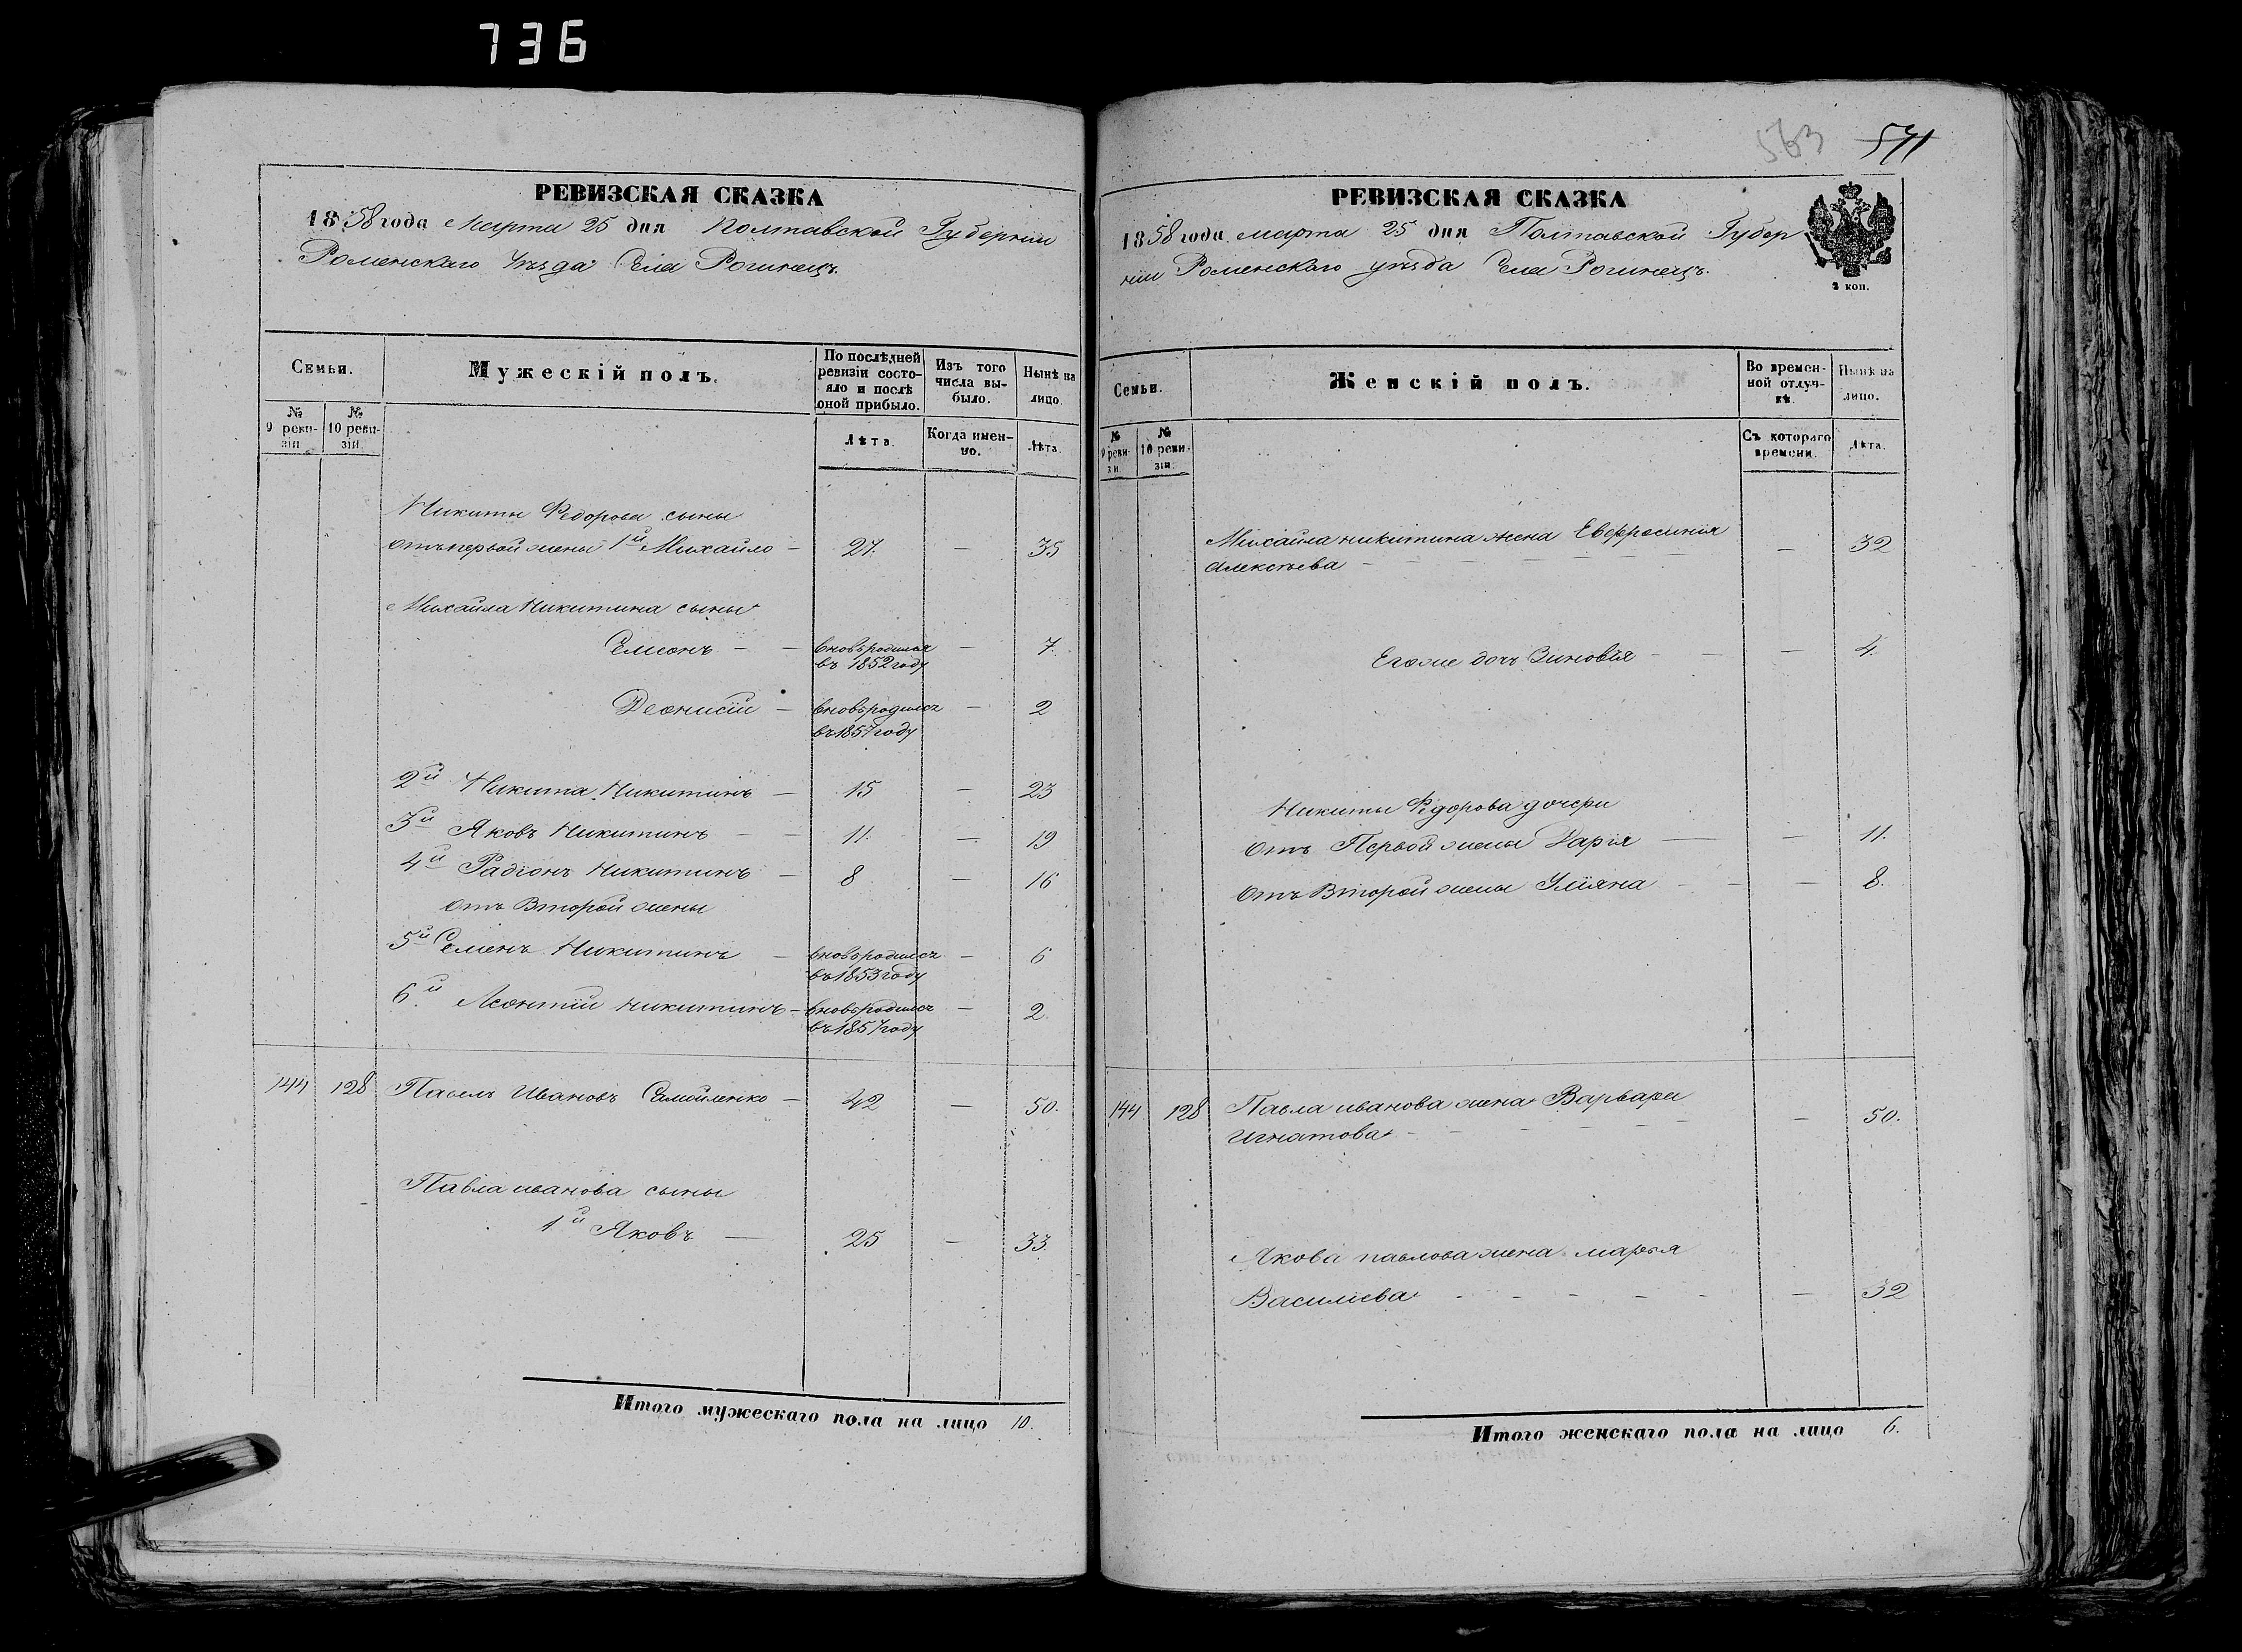 736
РЕВИЗСКАЯ СКАЗКА
1858 года Марта 25 дня Полтавской Губернии
Роменскаго Уезда Села Рогинецъ.
Семьи.
Мужескій полъ.
По послѣдней ревизіи состо-
яло и послѣ
оной прибыло.
Изъ того
числа вы-
было.
Нынѣ на
лицо.
№
9 реви-
зіи
№
10 реви-
зіи.
Лѣта.
Когда имен-
но.
Лѣта.
Никиты Федорова сыны
отъ первой жены 1й Михайло — 27. — 35
Михайла Никитина сыны
Семионъ — — вновьродился — 7.
въ 1852 году
Деонисій — вновьродился — 2
въ 1857 году
2й Никита Никитинъ — 15 — 23
3й Яковъ Никитинъ — — 11. — 19
4й Радіонъ Никитинъ — 8 — 16
отъ Второй жены
5й Семенъ Никитинъ — вновьродился — 6
въ 1853 году
6й Леонтій Никитинъ — вновьродился — 2
въ 1857 году
144 128 Павелъ Ивановъ Самойленко — 42 — 50.
Павла иванова сыны
1й Яковъ — 25 — 33.
Итого мужескаго пола на лицо 10.
563 571
РЕВИЗСКАЯ СКАЗКА
1858 года марта 25 дня Полтавской Губер
ніи Роменскаго уѣзда Села Рогинецъ.
3 коп.
Семьи.
Женскій полъ.
Во времен-
ной отлуч-
кѣ.
Нынѣ на
лицо.
№
9 реви-
зіи.
№
10 реви-
зіи.
Съ котораго
времени.
Лѣта.
Михайла никитина жена Евфросинія — 32
Алексѣева —
Егоже дочь Зиновія — — — 4.
Никиты Федорова дочери
Отъ Первой жены Дарія — — 11.
Отъ Второй жены Уліяна — — — 8.
144 128 Павла иванова жена Варвара — 50.
Игнатова —
Якова павлова жена марья
Василиева — — 32
Итого женскаго пола на лицо 6.